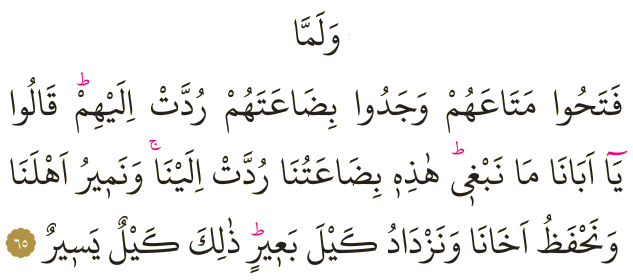 وَلَمَّا
فَتَحُوا مَتَاعَهُمْ وَجَدُوا بِضَاعَتَهُمْ رُدَّتْ اِلَيْهِمْۜ قَالُوا
يَٓا اَبَانَا مَا نَبْغ۪يۜ هٰذِه۪ بِضَاعَتُنَا رُدَّتْ اِلَيْنَاۚ وَنَم۪يرُ اَهْلَنَا
وَنَحْفَظُ اَخَانَا وَنَزْدَادُ كَيْلَ بَع۪يرٍۜ ذٰلِكَ كَيْلٌ يَس۪يرٌ ٦٥